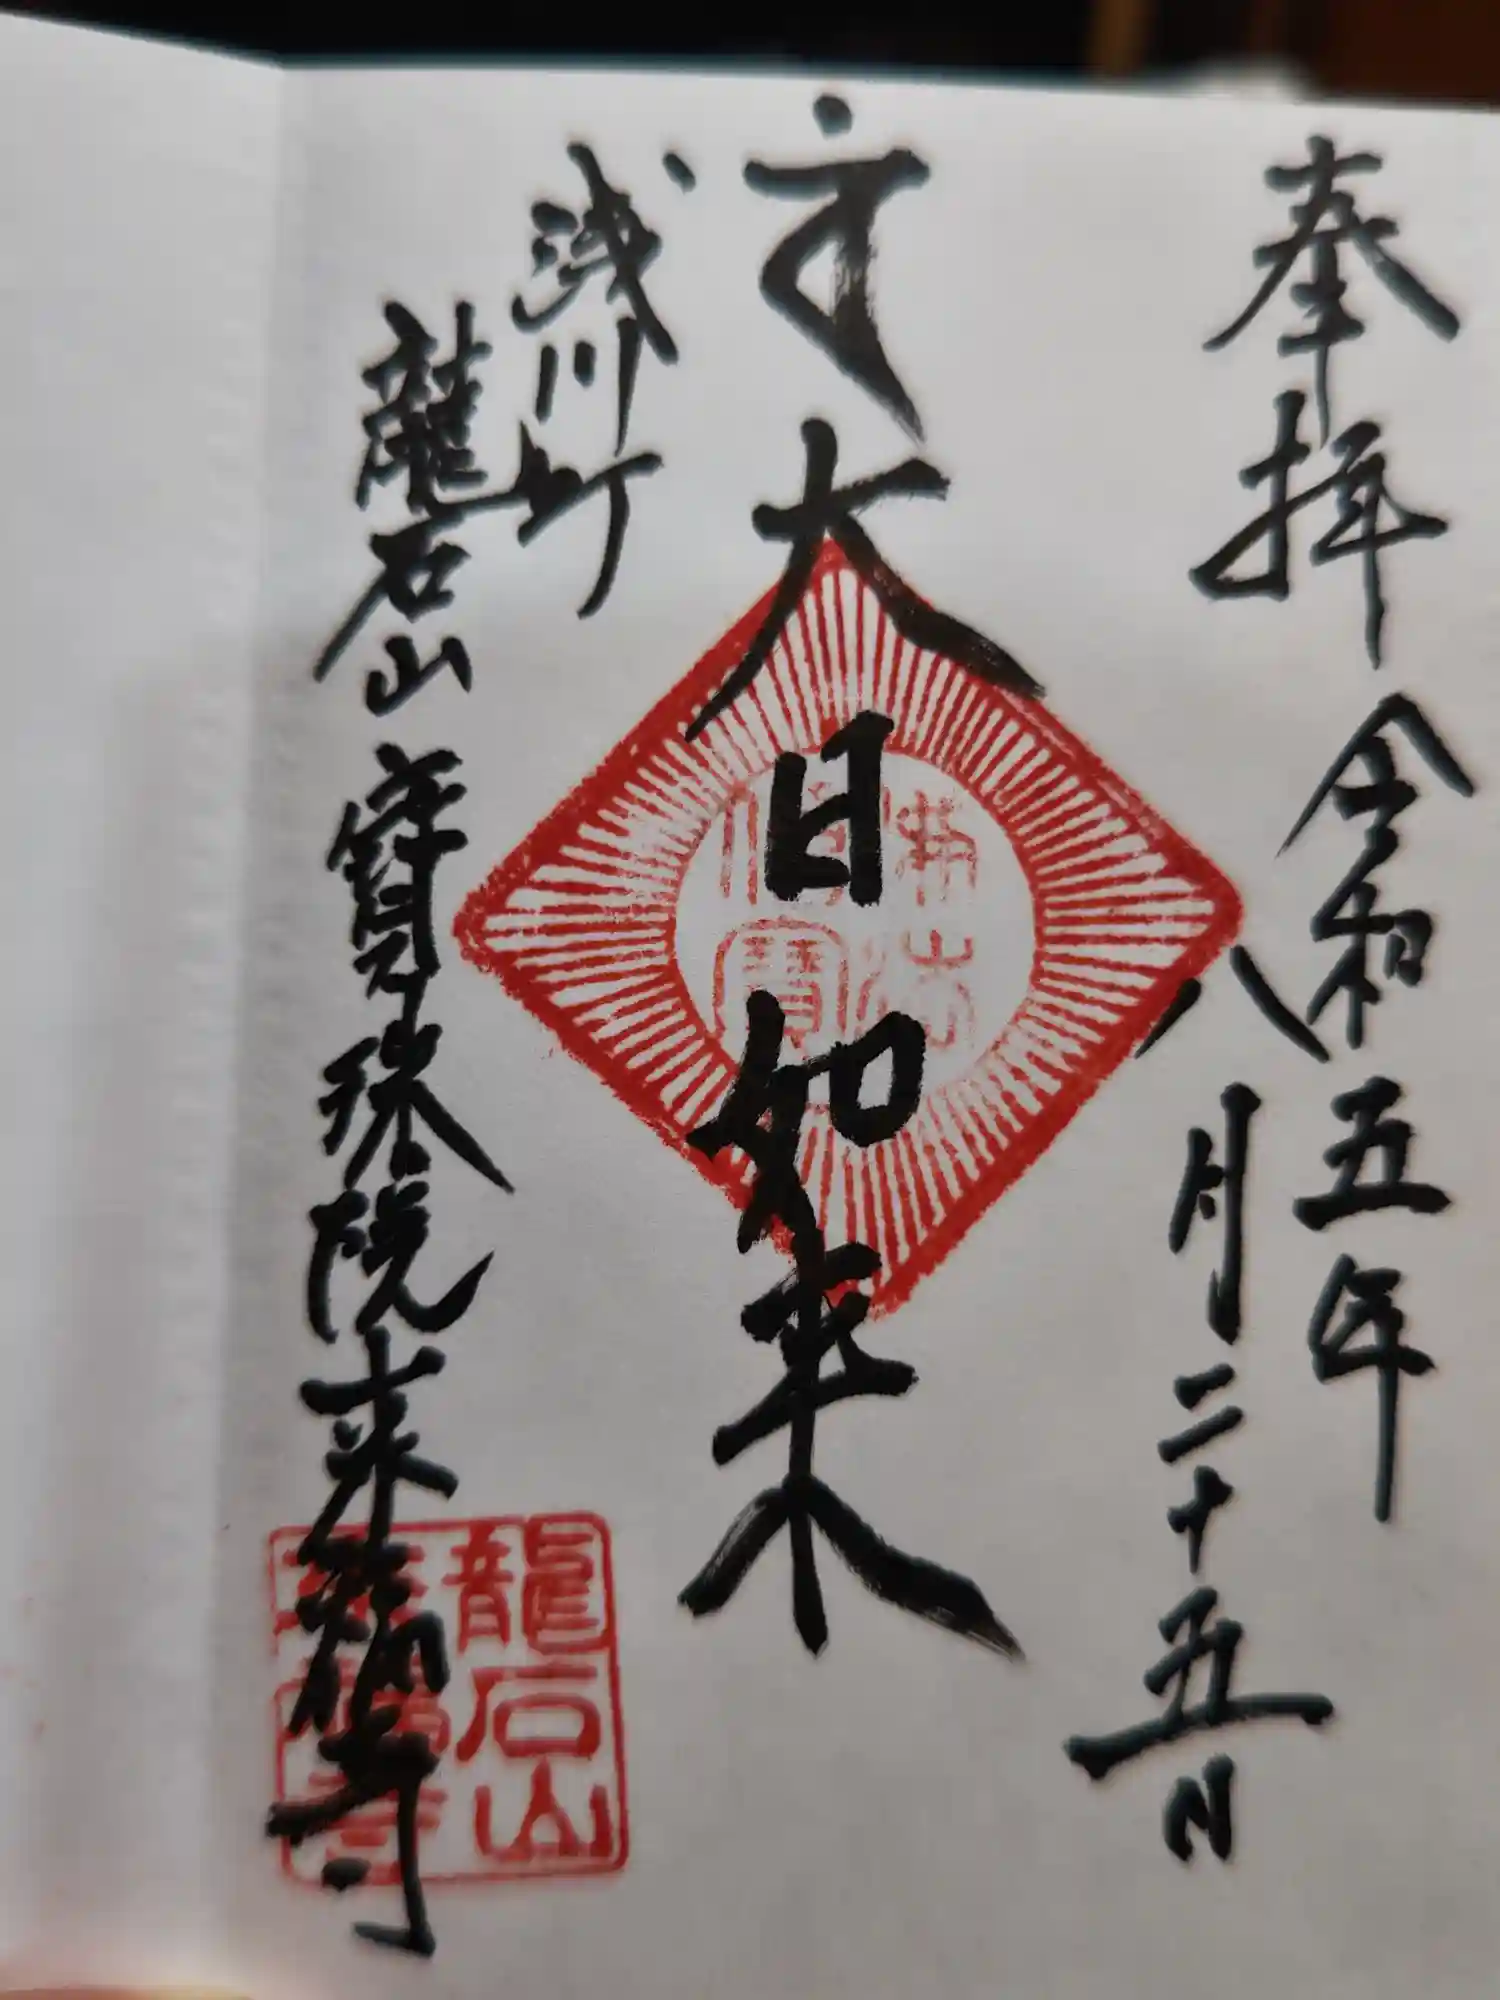 奉拝
令和五年
八月二十五日
𑖪𑖽 大日如来
浅川町
龍石山 寳珠院 来福寺
佛法
僧寳
龍石山
来福寺